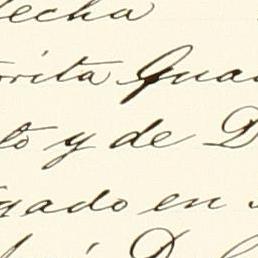 fecha
rita Gua
to y de D
gado en